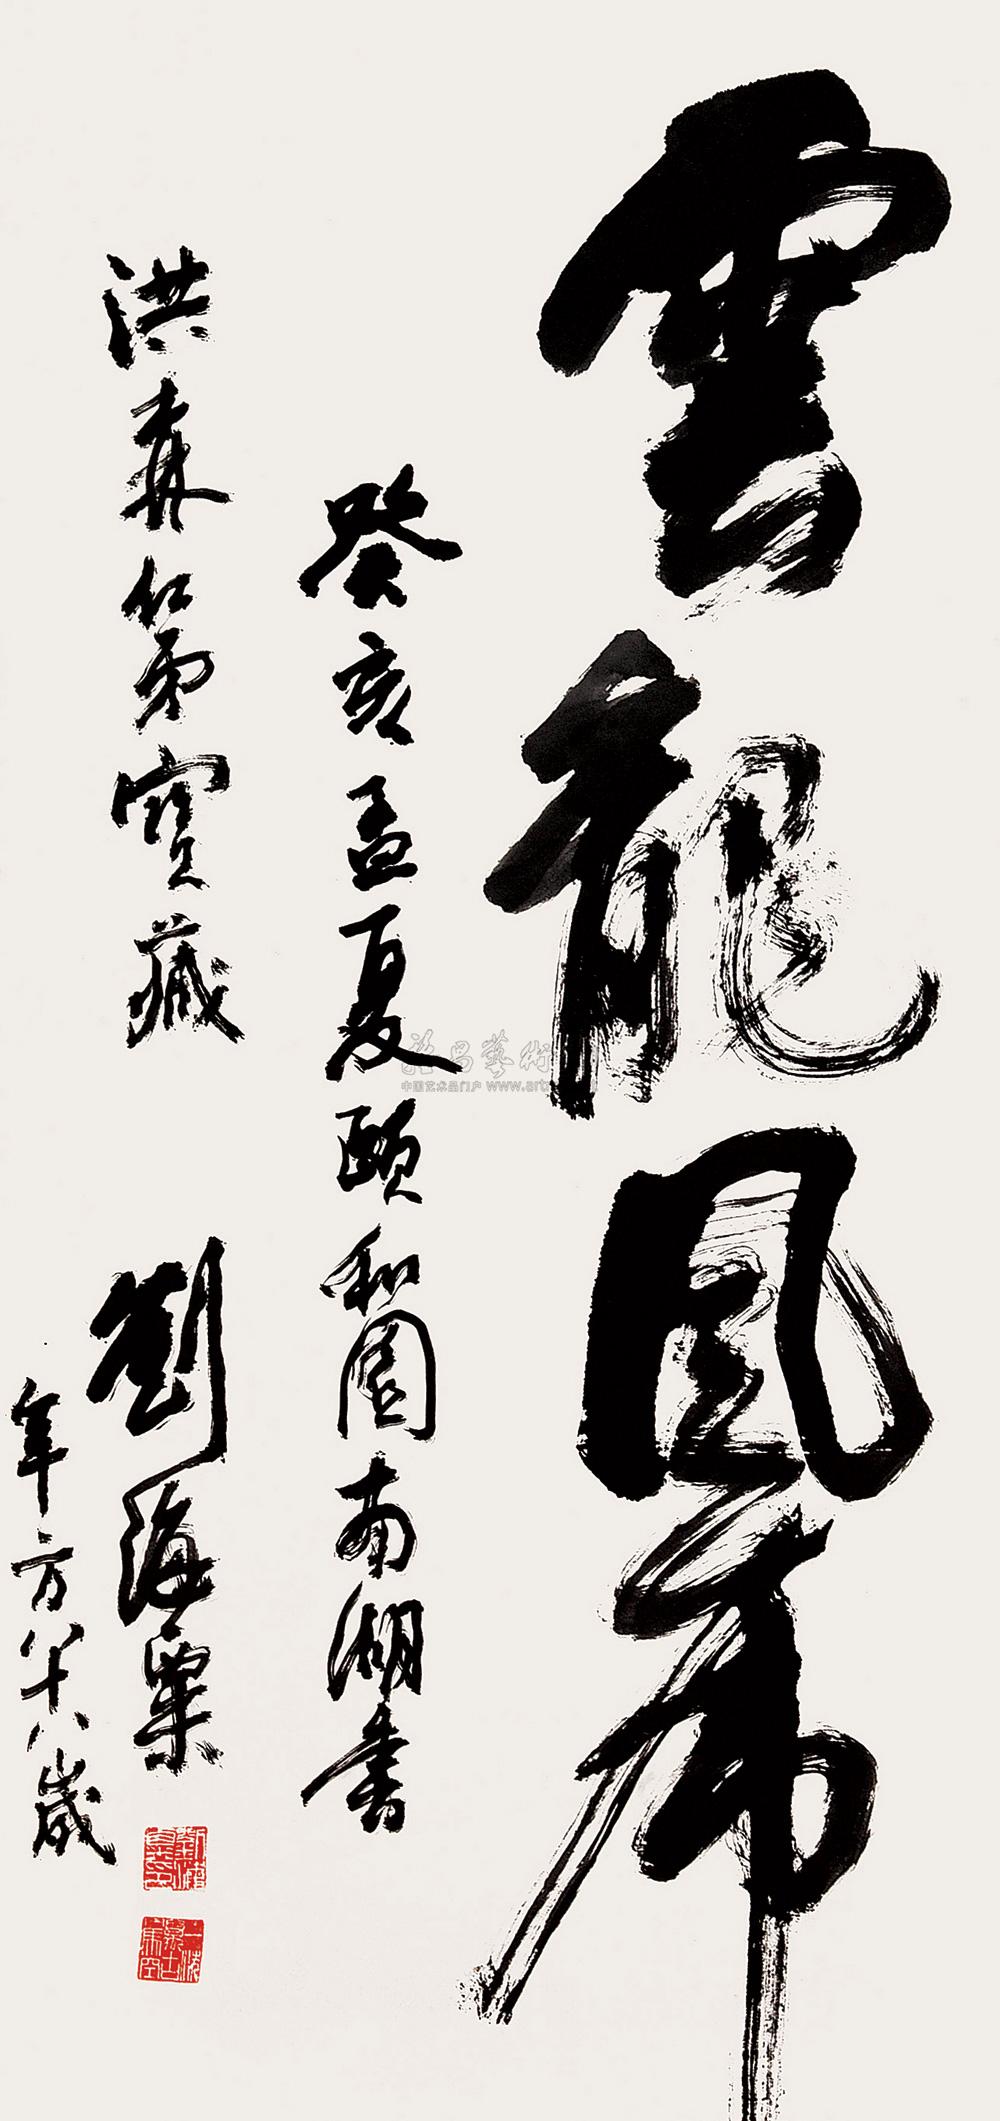 雲龍風虎
癸亥孟夏頤和園南湖書
洪森仁弟寶藏
劉海粟
年方八十八歲
中国艺术品门户 www.art